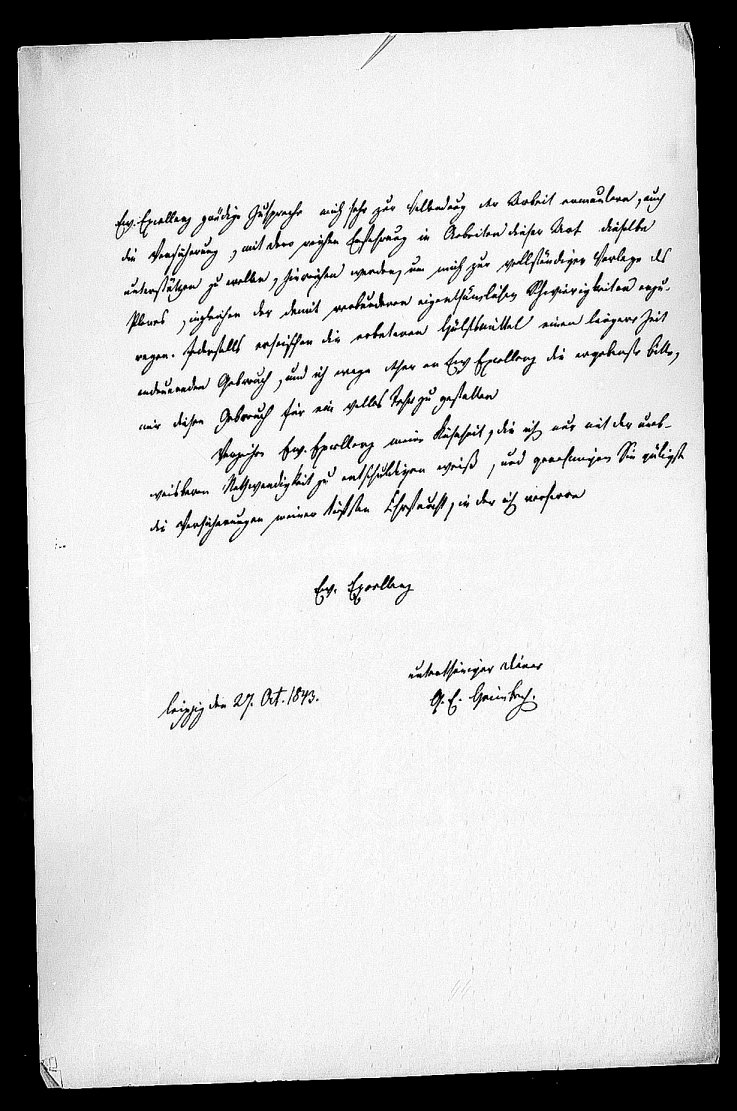 Ew. Excellenz gnädige Zusprache mich sehr zur Vollendung der Arbeit ermuntern, auch
die Versicherung, mit dero reichen Erfahrung in Arbeiten dieser Art dieselbe
unterstützen zu wollen, hinreichen werden, um mich zur vollständigen Vorlage des
Planes, ingleichen der damit verbundenen eigenthümlichen Schwierigkeiten anzu-
regen. Jedenfalls erheischen die erbetenen Hülfsmittel einen längere Zeit
andauernden Gebrauch, und ich wage daher an Ew Excellenz die ergebenste Bitte,
mir diesen Gebrauch für ein volles Jahr zu gestatten
Verzeihen Ew. Excellenz meine Kühnheit, die ich nur mit der unab-
weisbaren Nothwendigkeit zu entschuldigen weiß, und genehmigen Sie gütigst
die Versicherungen meiner tiefsten Ehrfurcht, in der ich verharre
Ew. Excellenz
unterthäniger Diener
Leipzig den 27. Oct. 1843.